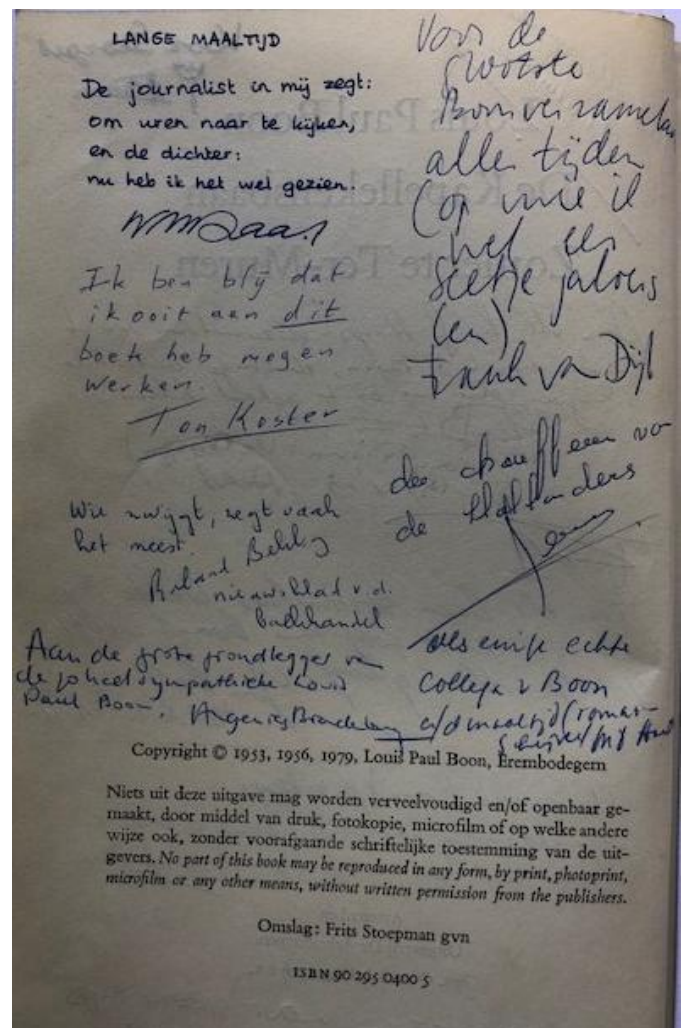 LANGE MAALTIJD
De journalist in mij zegt:
om uren naar te kijken,
en de dichter:
nu heb ik het wel gezien.
Ik ben blij dat
ik ooit aan dit
boek heb mogen
werken.
Ton Koster
Wie zwijgt, zegt vaak
het meest.
nieuwsblad v.d.
boekhandel
Aan de grote grondlegger van
de zo heel sympathieke Louis
Paul Boon.
Voor de
grootste
Boonverzamelaar
aller tijden
(op wie ik
wel een
beetje jaloers
ben)
Frank van Dijl
de chauffeur van
de Hollanders
als enige echte
collega v Boon
a/d maaltijd (roman-
Copyright © 1953, 1956, 1979, Louis Paul Boon, Erembodegem
Niets uit deze uitgave mag worden verveelvoudigd en/of openbaar ge-
maakt, door middel van druk, fotokopie, microfilm of op welke andere
wijze ook, zonder voorafgaande schriftelijke toestemming van de uit-
gevers. No part of this book may be reproduced in any form, by print, photoprint,
microfilm or any other means, without written permission from the publishers.
Omslag: Frits Stoepman gvn
ISBN 90 295 0400 5